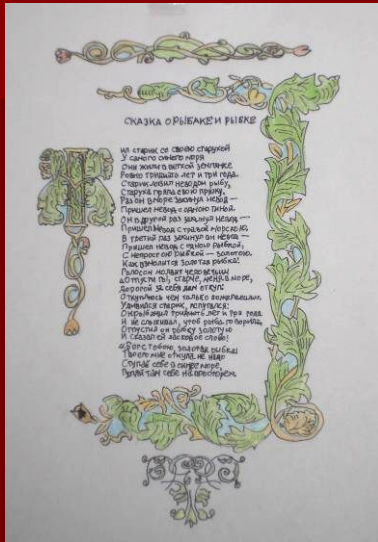 СКАЗКА О РЫБАКЕ И РЫБКЕ
ил старик со своею старухой
У самого синего моря
Они жили в ветхой землянке
Ровно тридцать лет и три года.
Старик ловил неводом рыбу,
Старуха пряла свою пряжу.
Раз он в море закинул невод —
Пришел невод с одною тиной.
Он в другой раз закинул невод —
Пришел невод с травой морскою,
В третий раз закинул он невод —
Пришел невод с одною рыбкой,
С непростою рыбкой — золотою.
Как взмолится золотая рыбка!
Голосом молвит человечьим
"Отпусти ты, старче, меня в море,
Дорогой за себя дам откуп:
Откуплюсь чем только пожелаешь."
Удивился старик, испугался:
Он рыбачил тридцать лет и три года
И не слыхивал, чтоб рыба говорила.
Отпустил он рыбку золотую
И сказал ей ласковое слово:
"Бог с тобою, золотая рыбка!
Твоего мне откупа не надо
Ступай себе в синее море,
Гуляй там себе на просторе".